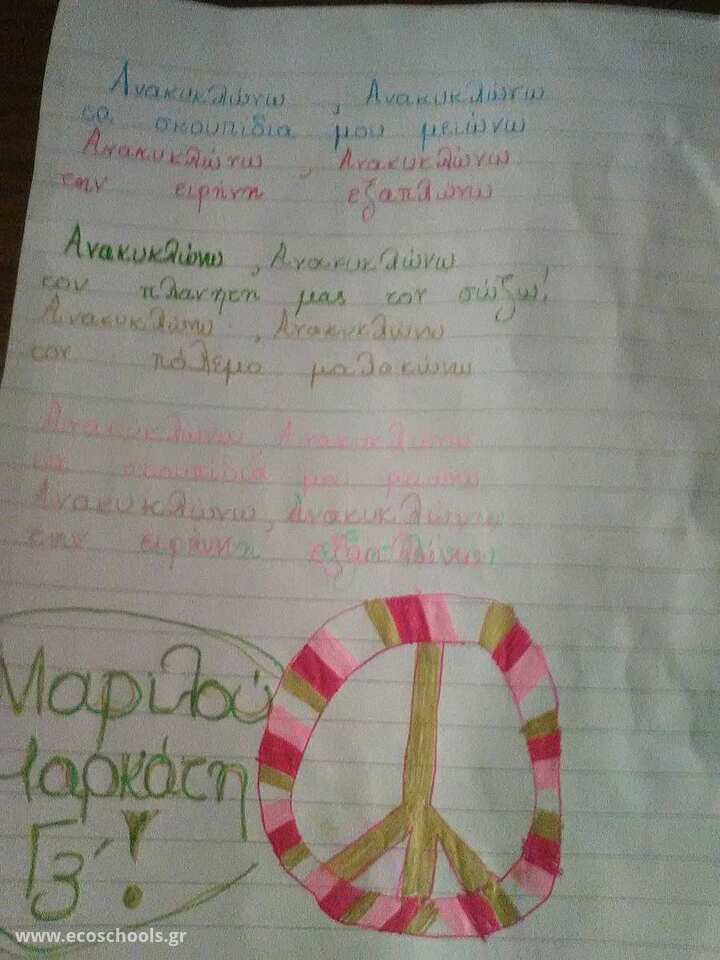 Ανακυκλώνω , Ανακυκλώνω
τα σκουπίδια μου μειώνω
Ανακυκλώνω , Ανακυκλώνω
την ειρήνη εξαπλώνω
Ανακυκλώνω , Ανακυκλώνω
τον πλανήτη μας τον σώζω!
Ανακυκλώνω , Ανακυκλώνω
τον πόλεμο μαλακώνω
Ανακυκλώνω Ανακυκλώνω
τα σκουπίδιά μου μειώνω
Ανακυκλώνω, Ανακυκλώνω
την ειρήνη εξαπλώνω
Μαριλού
Γ3΄!
www.ecoschools.gr